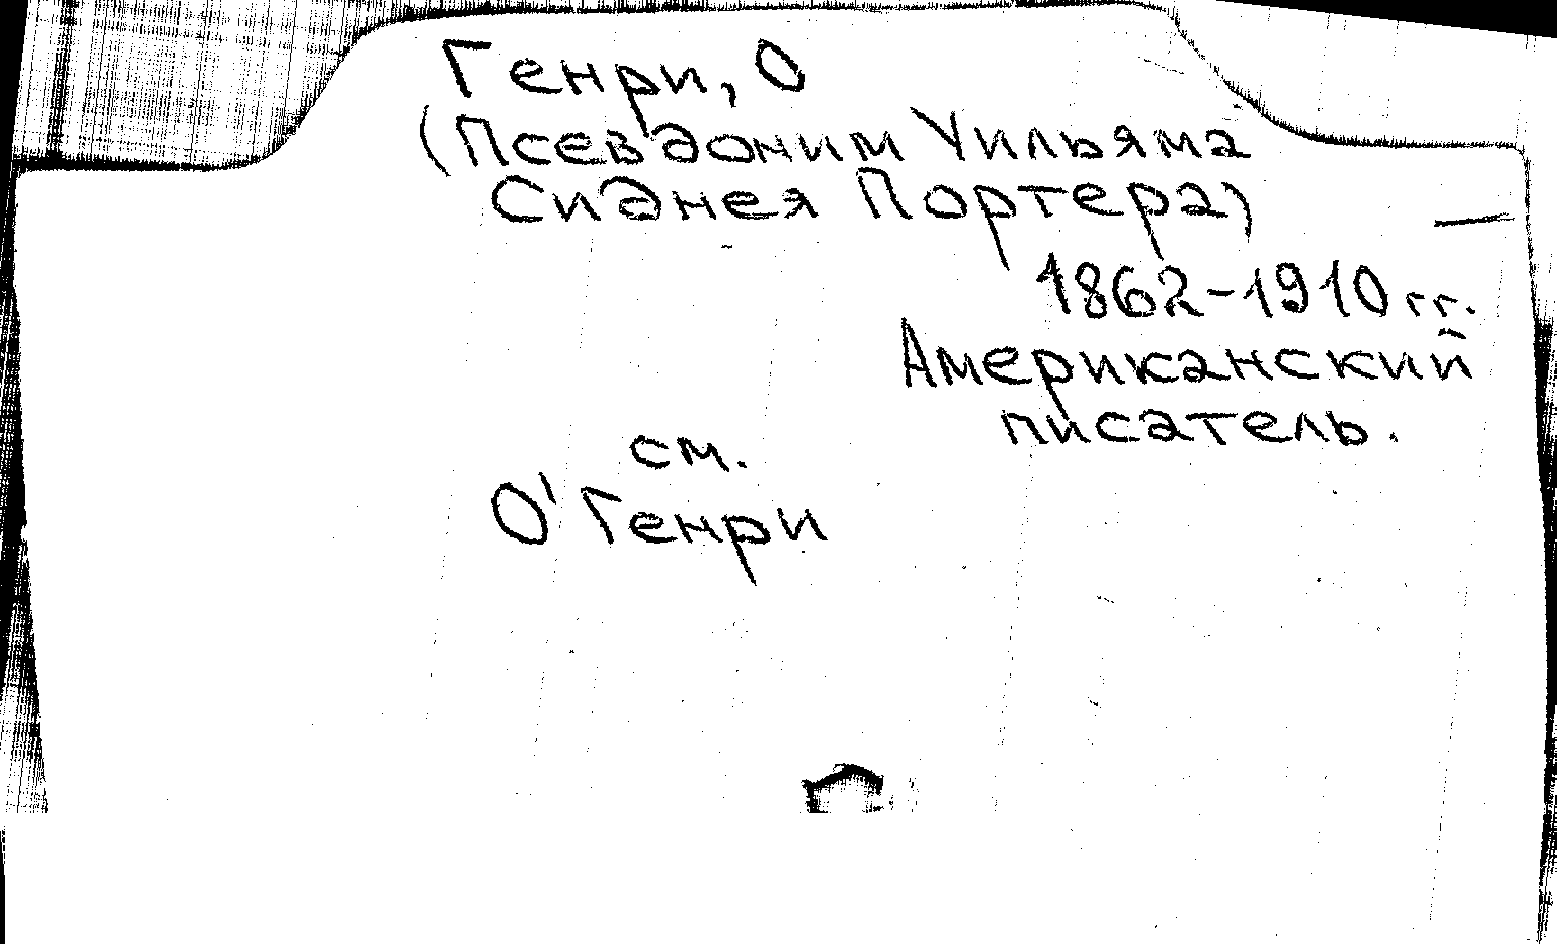 Генри, О
(Псевдоним Уильяма
Сиднея Портера)
1862-1910 гг.
Американский
писатель.
см.
О'Генри